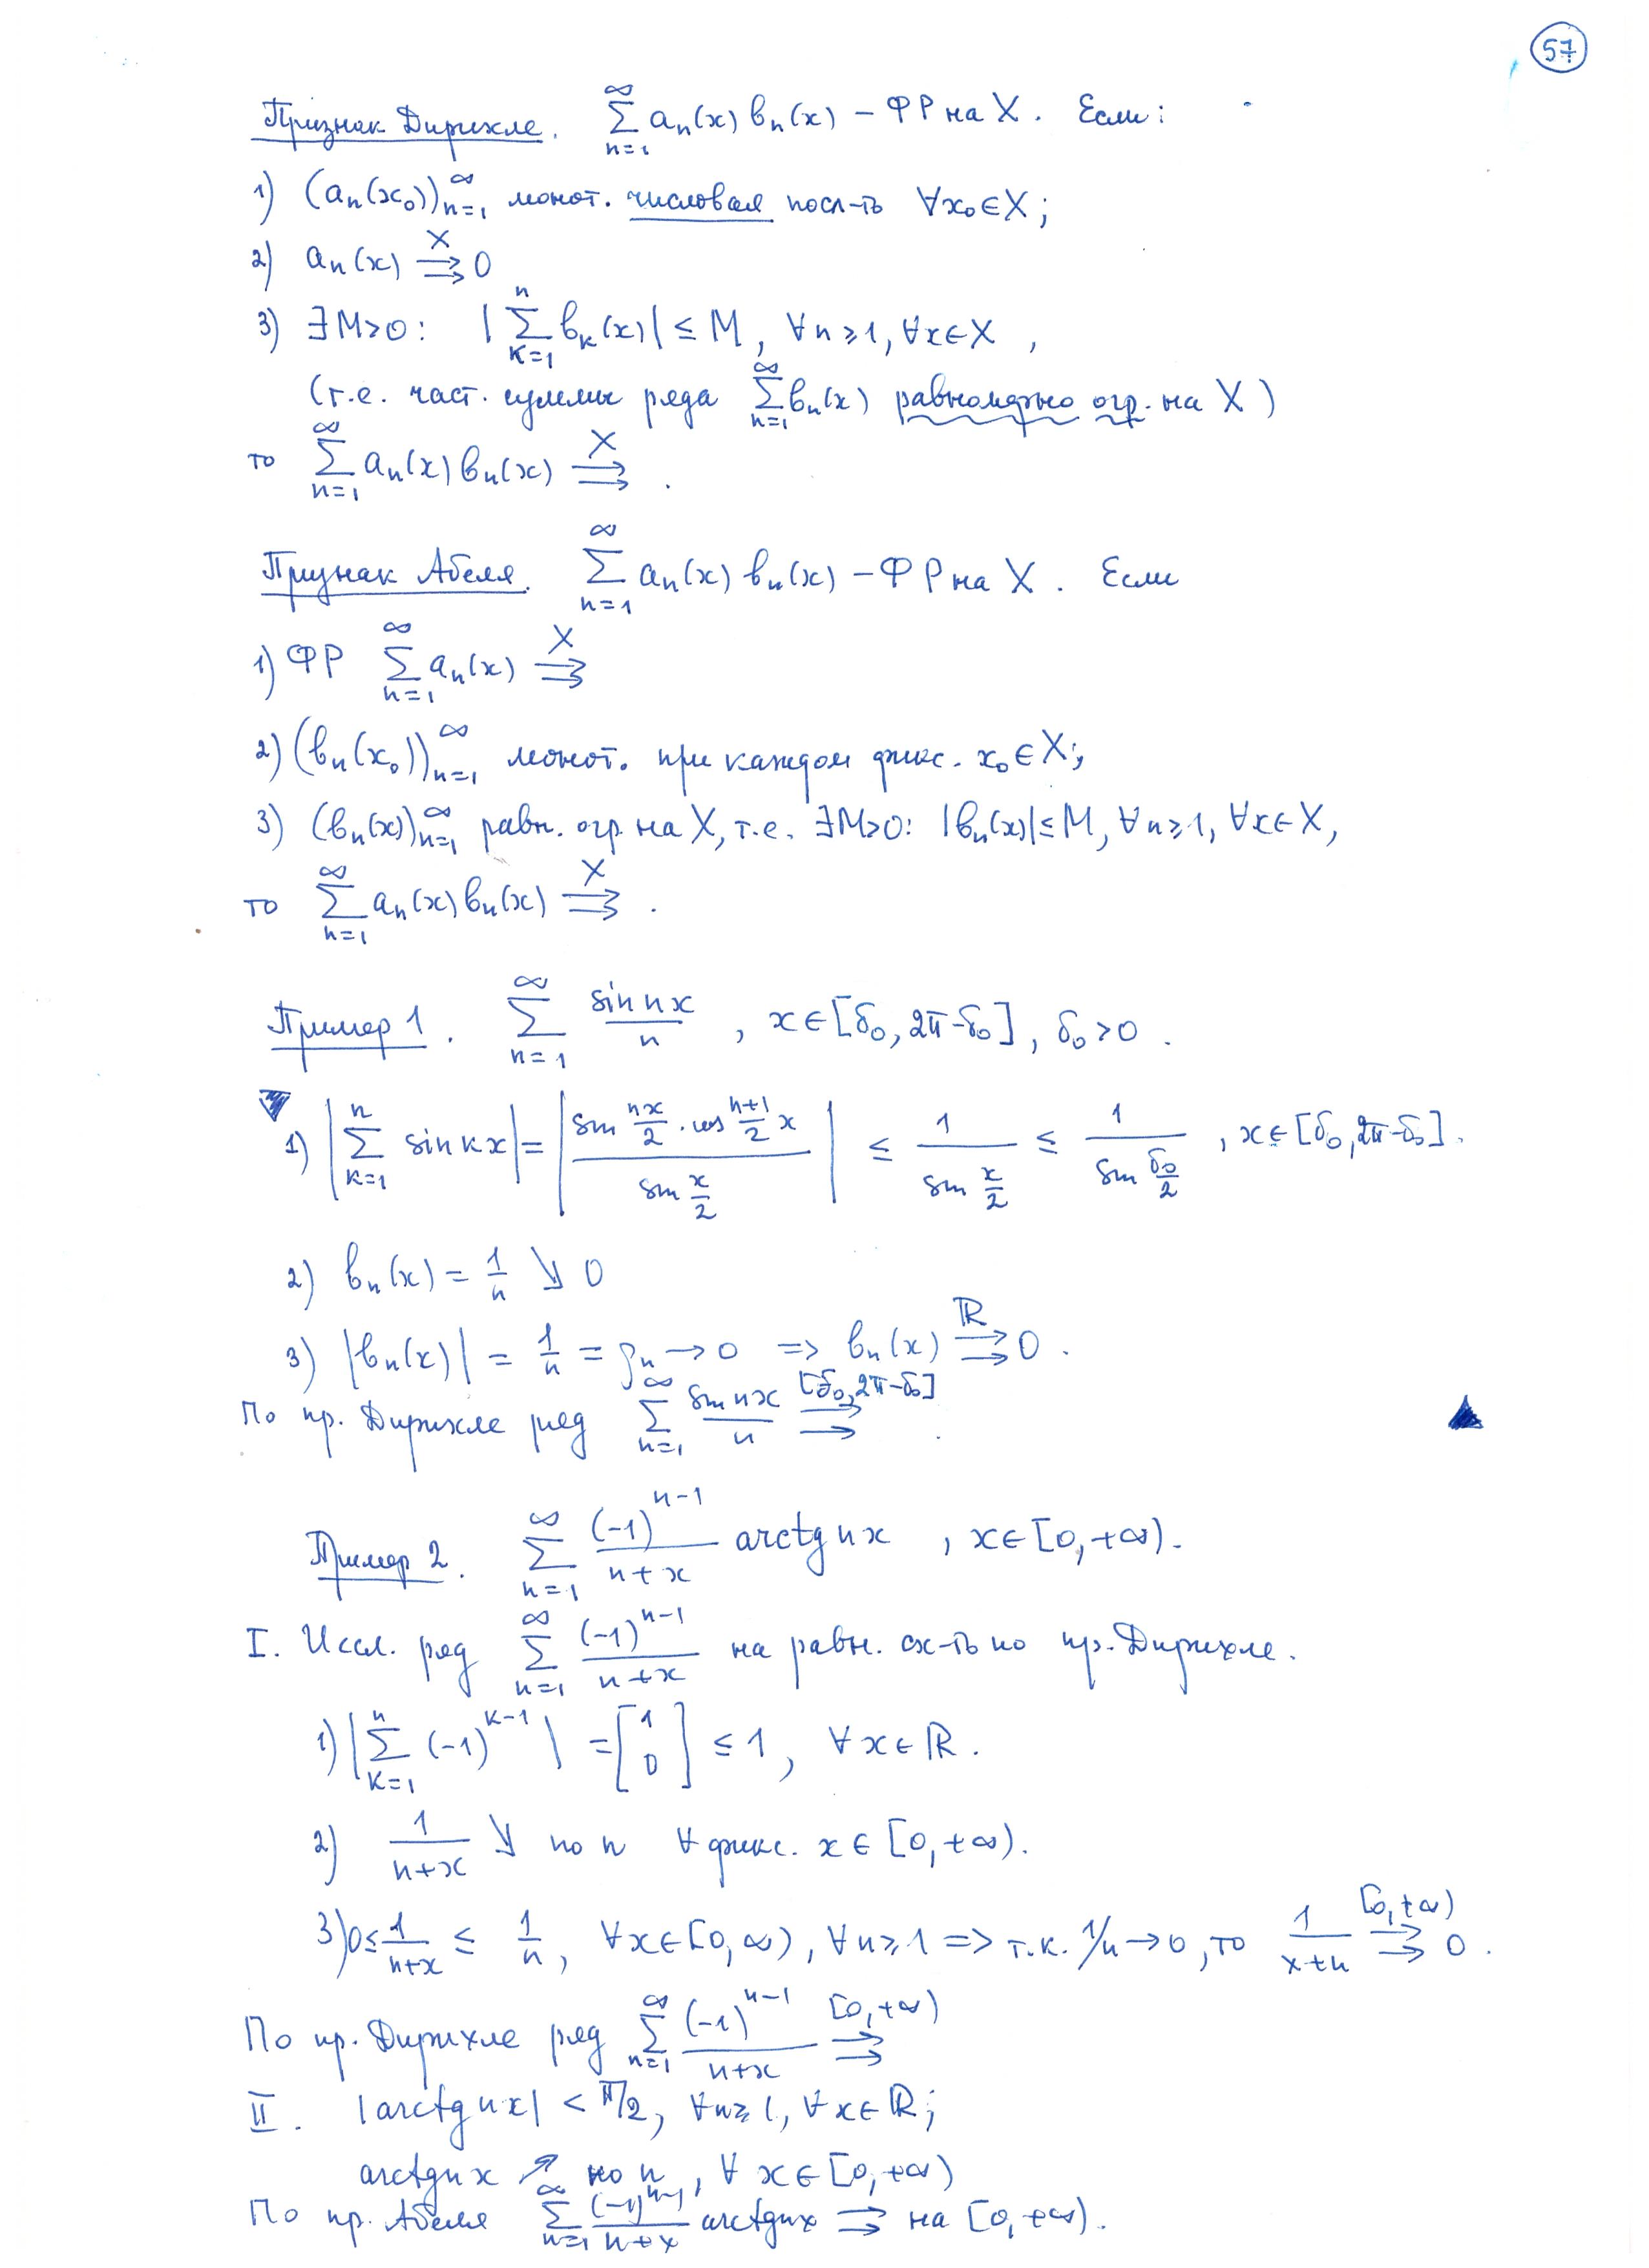 57
Признак Дирихле. ∑_{n=1}^{∞} a_n(x) b_n(x) – ФР на X. Если:
1) (a_n(x_0))_{n=1}^{∞} монот. числовая посл-ть ∀x_0∈X;
2) a_n(x) ⇉^{X} 0
3) ∃M>0: |∑_{k=1}^{n} b_k(x)| ≤ M, ∀n≥1, ∀x∈X,
(т.е. част. суммы ряда ∑_{n=1}^{∞} b_n(x) равномерно огр. на X)
то ∑_{n=1}^{∞} a_n(x) b_n(x) ⇉^{X}.
Признак Абеля. ∑_{n=1}^{∞} a_n(x) b_n(x) – ФР на X. Если
1) ФР ∑_{n=1}^{∞} a_n(x) ⇉^{X}
2) (b_n(x_0))_{n=1}^{∞} монот. при каждом фикс. x_0∈X;
3) (b_n(x))_{n=1}^{∞} равн. огр. на X, т.е. ∃M>0: |b_n(x)|≤M, ∀n≥1, ∀x∈X,
то ∑_{n=1}^{∞} a_n(x) b_n(x) ⇉^{X}.
Пример 1. ∑_{n=1}^{∞} \frac{sin nx}{n}, x∈[δ_0, 2π-δ_0], δ_0>0.
1) |∑_{k=1}^{n} sin kx| = |\frac{sin \frac{nx}{2} · cos \frac{n+1}{2}x}{sin \frac{x}{2}}| ≤ \frac{1}{sin \frac{x}{2}} ≤ \frac{1}{sin \frac{δ_0}{2}}, x∈[δ_0, 2π-δ_0].
2) b_n(x) = \frac{1}{n} ↘ 0
3) |b_n(x)| = \frac{1}{n} = ρ_n → 0 => b_n(x) ⇉^{ℝ} 0.
По пр. Дирихле ряд ∑_{n=1}^{∞} \frac{sin nx}{n} ⇉^{[δ_0, 2π-δ_0]}.
Пример 2. ∑_{n=1}^{∞} \frac{(-1)^{n-1}}{n+x} arctg nx, x∈[0,+∞).
I. Иссл. ряд ∑_{n=1}^{∞} \frac{(-1)^{n-1}}{n+x} на равн. сх-ть по пр. Дирихле.
1) |∑_{k=1}^{n} (-1)^{k-1}| = [1 0] ≤ 1, ∀x∈ℝ.
2) \frac{1}{n+x} ↘ по n ∀ фикс. x∈[0,+∞).
3) 0≤\frac{1}{n+x} ≤ \frac{1}{n}, ∀x∈[0,∞), ∀n≥1 => т.к. 1/n→0, то \frac{1}{x+n} ⇉^{[0,+∞)} 0.
По пр. Дирихле ряд ∑_{n=1}^{∞} \frac{(-1)^{n-1}}{n+x} ⇉^{[0,+∞)}
II. |arctg nx| < π/2, ∀n≥1, ∀x∈ℝ;
arctg nx ↗ по n, ∀ x∈[0,+∞)
По пр. Абеля ∑_{n=1}^{∞} \frac{(-1)^{n-1}}{n+x} arctg nx ⇉ на [0,+∞).